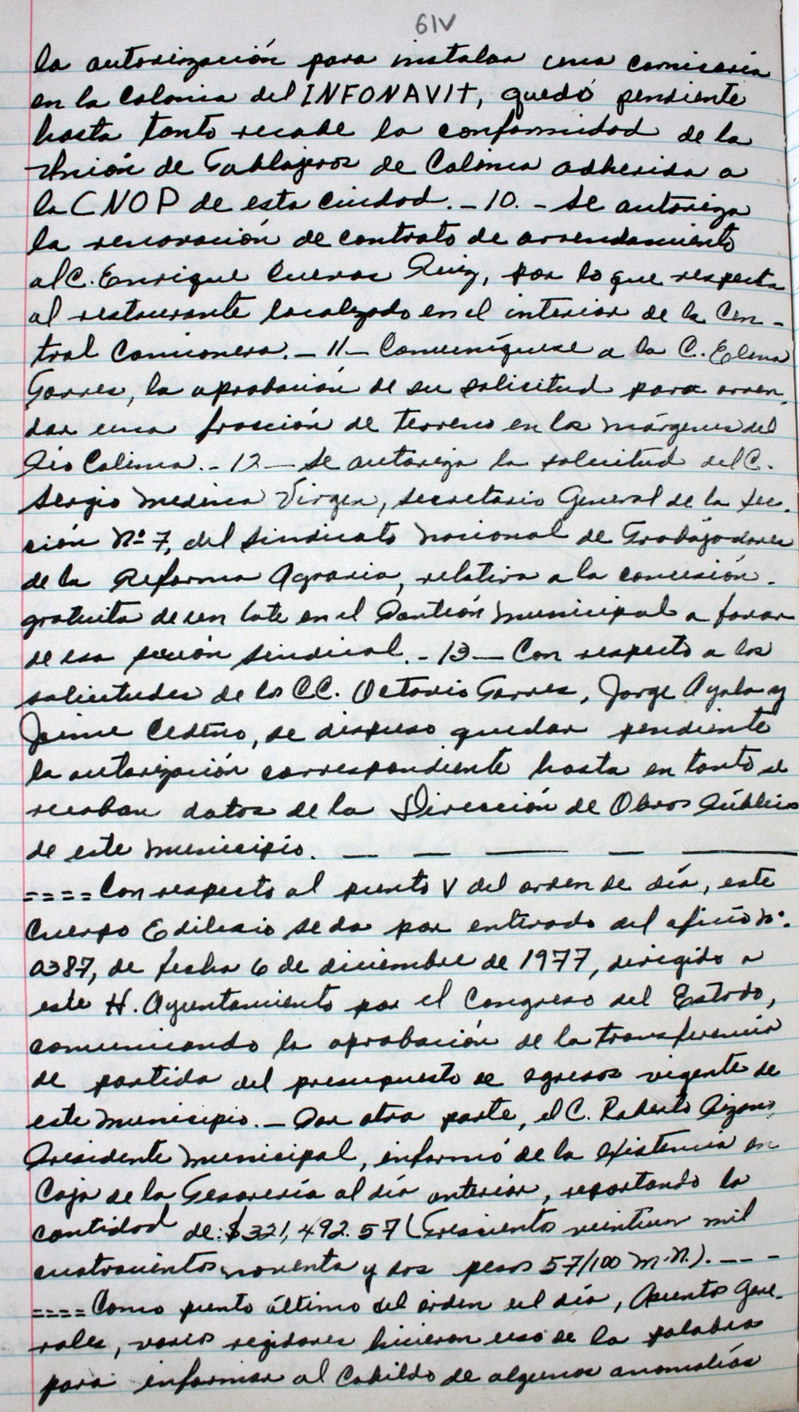 61V
la autorización para instalar una carnicería
en la Colonia del INFONAVIT, quedó pendiente
hasta tanto recabe la conformidad de la
Unión de Tablajeros de Colima adherida a
la CNOP de esta ciudad. - 10. - Se autoriza
la renovación de contrato de arrendamiento
al C. Enrique Cuevas Ruiz, por lo que respecta
al restaurante localizado en el interior de la Cen-
tral Camionera. - 11 - Comuníquese a la C. Elena
Torres, la aprobación de su solicitud para arren-
dar una fracción de terreno en los márgenes del
Río Colima. - 12 - Se autoriza la solicitud del C.
Sergio Medina Virgen, Secretario General de la Sec-
ción Nº 7, del Sindicato Nacional de Trabajadores
de la Reforma Agraria, relativa a la concesión
gratuita de un lote en el Panteón Municipal a favor
de esa sección sindical. - 13 - Con respecto a las
solicitudes de los CC. Octavio Torres, Jorge Ayala y
Jaime Cedeño, se dispuso quedar pendiente
la autorización correspondiente hasta en tanto se
recaban datos de la Dirección de Obras Públicas
de este Municipio. — — — — —
==== Con respecto al punto V del orden de día, este
Cuerpo Edilicio se da por enterado del oficio Nº.
0387, de fecha 6 de diciembre de 1977, dirigido a
este H. Ayuntamiento por el Congreso del Estado,
comunicando la aprobación de la transferencia
de partida del presupuesto de egresos vigente de
este Municipio. - Por otra parte, el C. Roberto Pizano
Presidente Municipal, informó de la existencia en
Caja de la Tesorería al día anterior, reportando la
cantidad de: $321,492.57 (Trescientos veintiun mil
cuatrocientos noventa y dos pesos 57/100 M.N.). - - -
==== Como punto último del orden del día, Asuntos Gene-
rales, varios regidores hicieron uso de la palabra
para informar al Cabildo de algunas anomalías